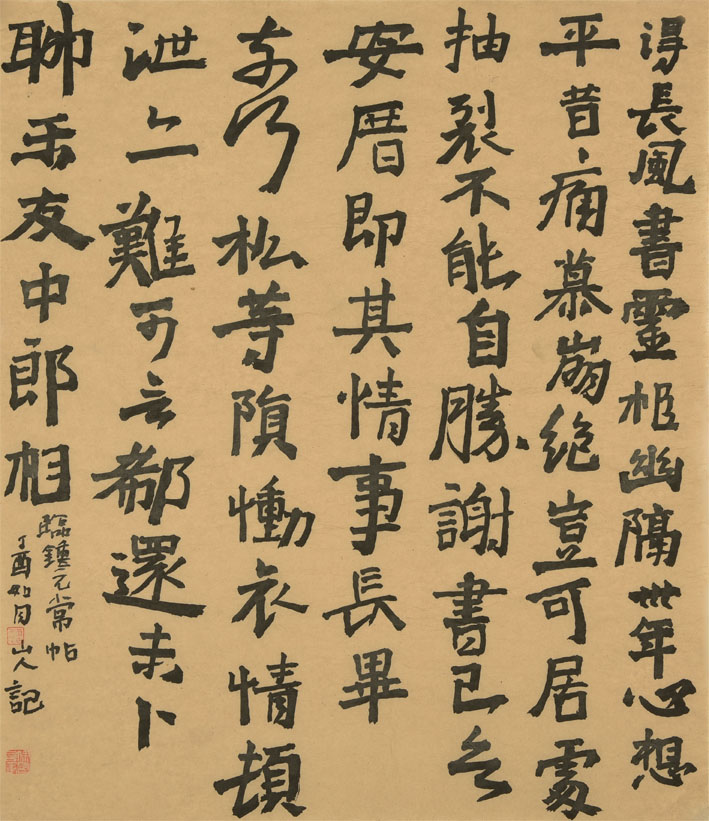 得長風書靈柩幽隔卅年心想
平昔痛慕崩絶豈可居處
抽裂不能自勝謝書已云
安厝即其情事長畢
奈何松等隕慟哀情頓
泄亦難可言郗還未卜
聊示友中郎相
臨鍾元常帖
丁酉如月山人記